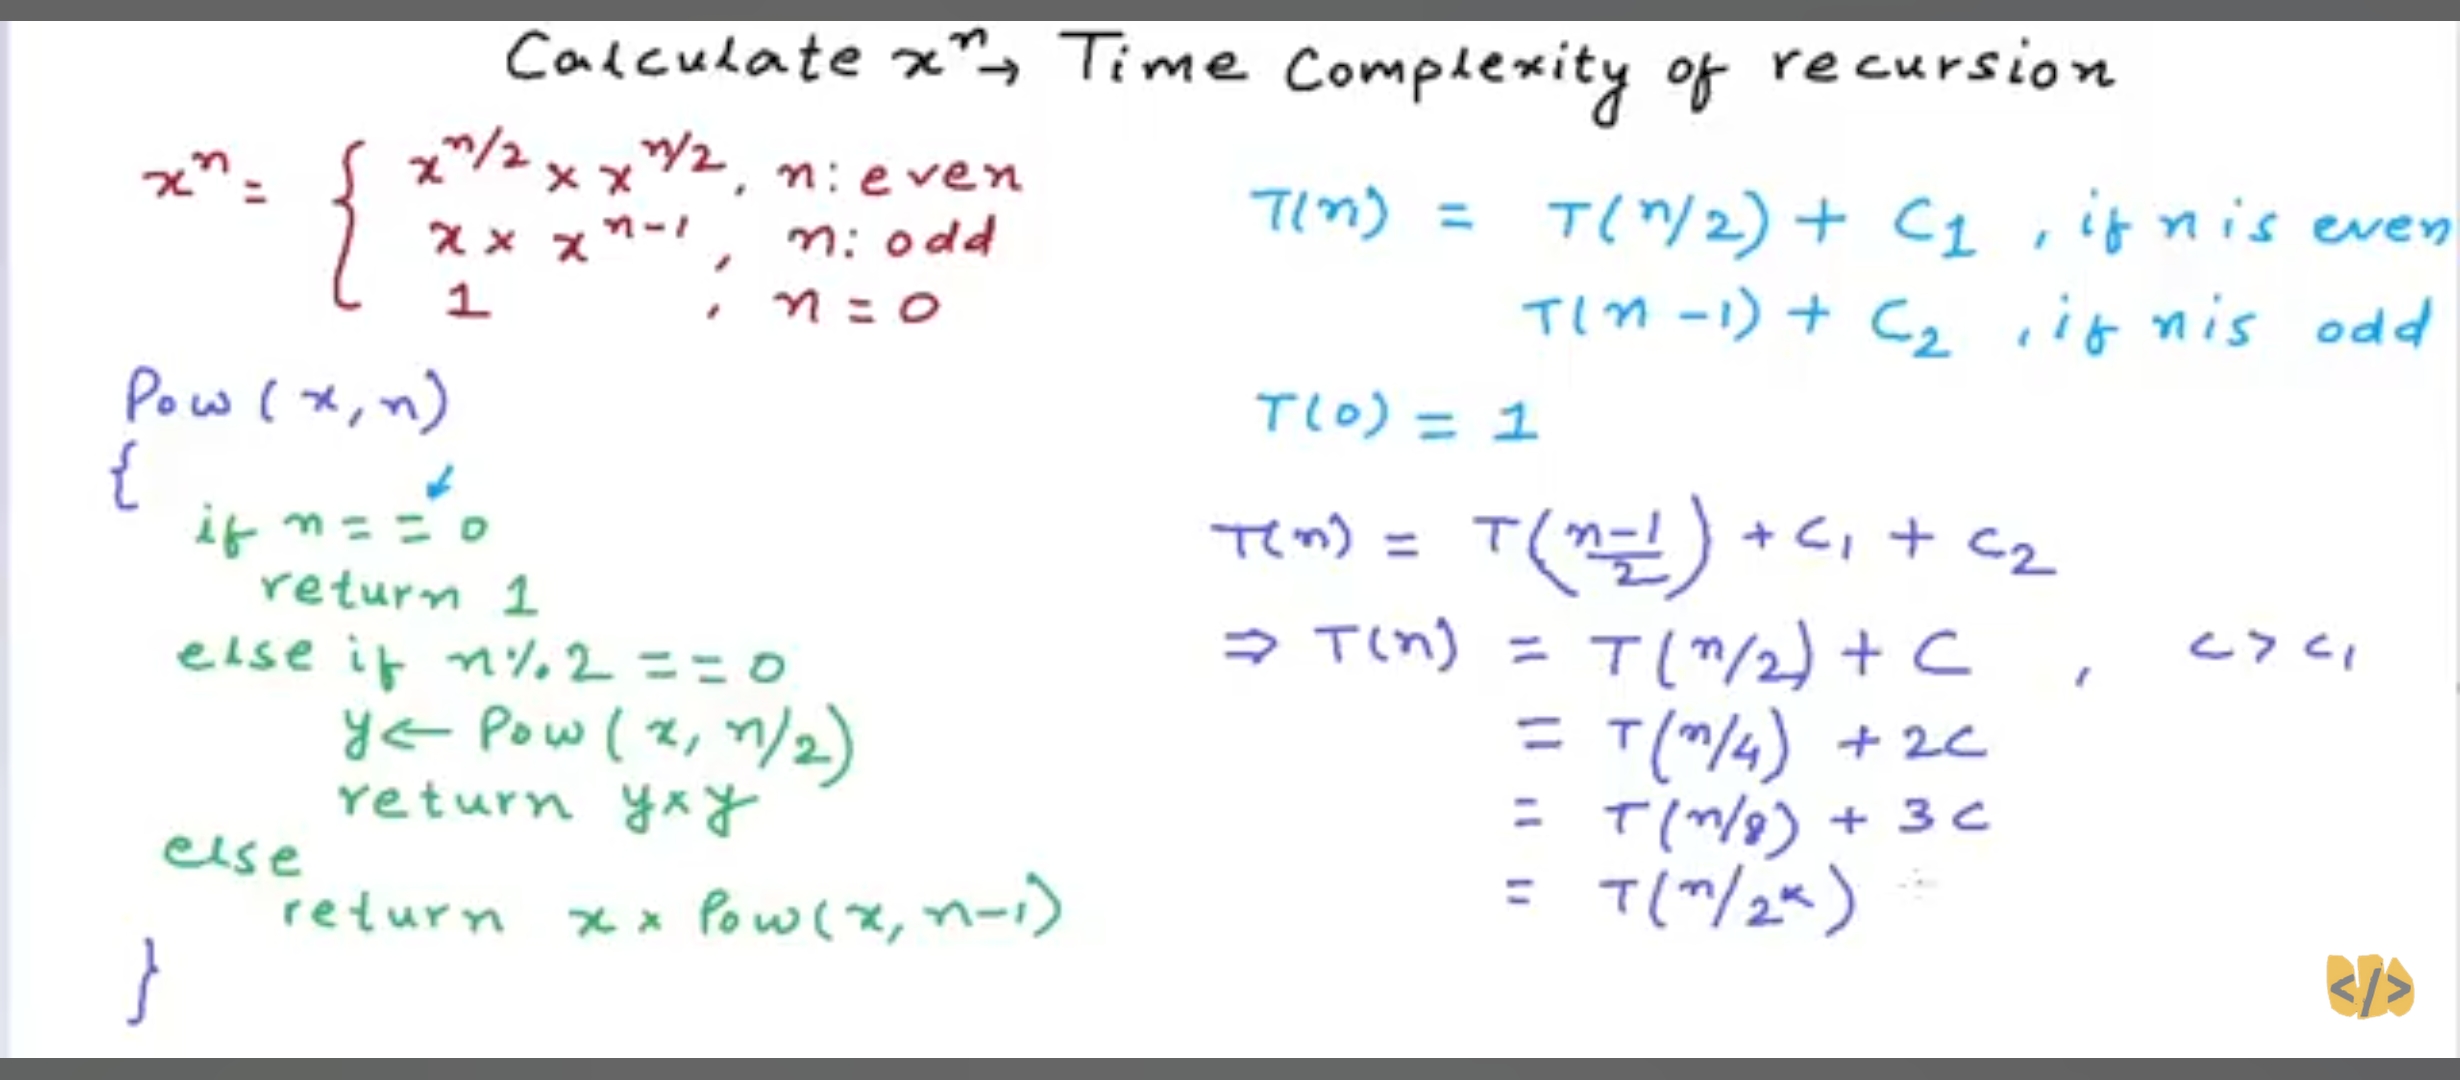 Calculate xⁿ → Time Complexity of recursion
xⁿ = { x^n/2 × x^n/2, n: even
x × x^n-1, n: odd
1, n = 0
Pow(x, n)
{
if n == 0
return 1
else if n % 2 == 0
y ← Pow(x, n/2)
return y×y
else
return x × Pow(x, n-1)
}
T(n) = T(n/2) + C1, if n is even
T(n-1) + C2, if n is odd
T(0) = 1
T(n) = T((n-1)/2) + C1 + C2
⇒ T(n) = T(n/2) + C, C > C1
= T(n/4) + 2C
= T(n/8) + 3C
= T(n/2^k)
</>